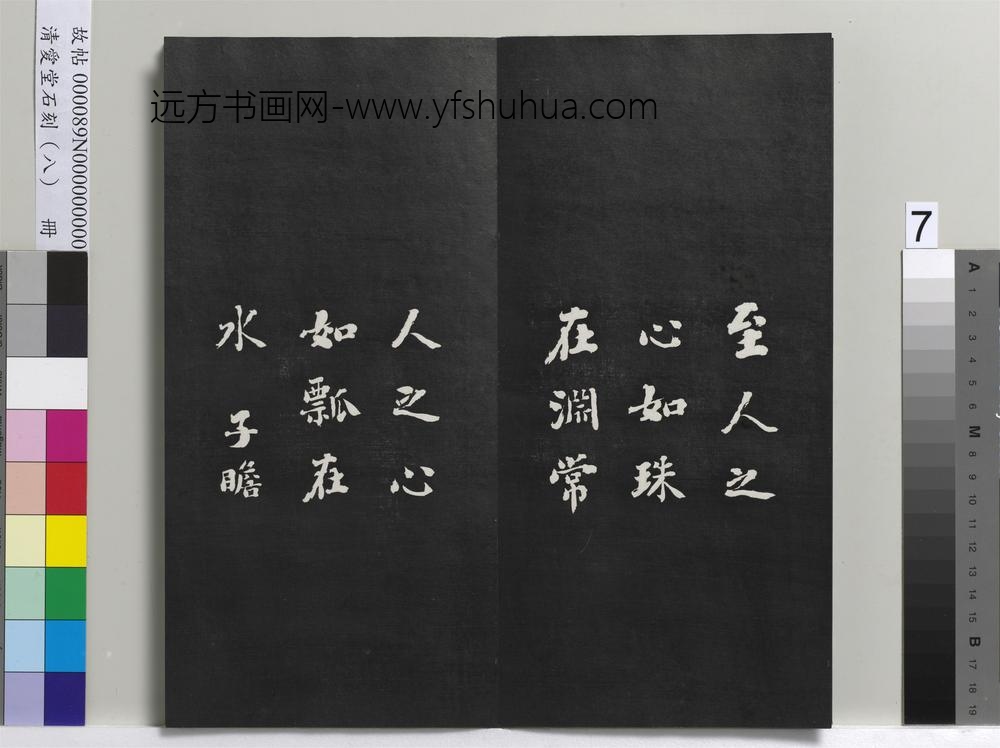 故帖 000089N000000000
清愛堂石刻（八） 冊
远方书画网-www.yfshuhua.com
至人之
心如珠
在淵常
人之心
如瓢在
水 子瞻
7
A 1 2 3 4 5 6 M 8 9 10 11 12 13 14 15 B 17 18 19